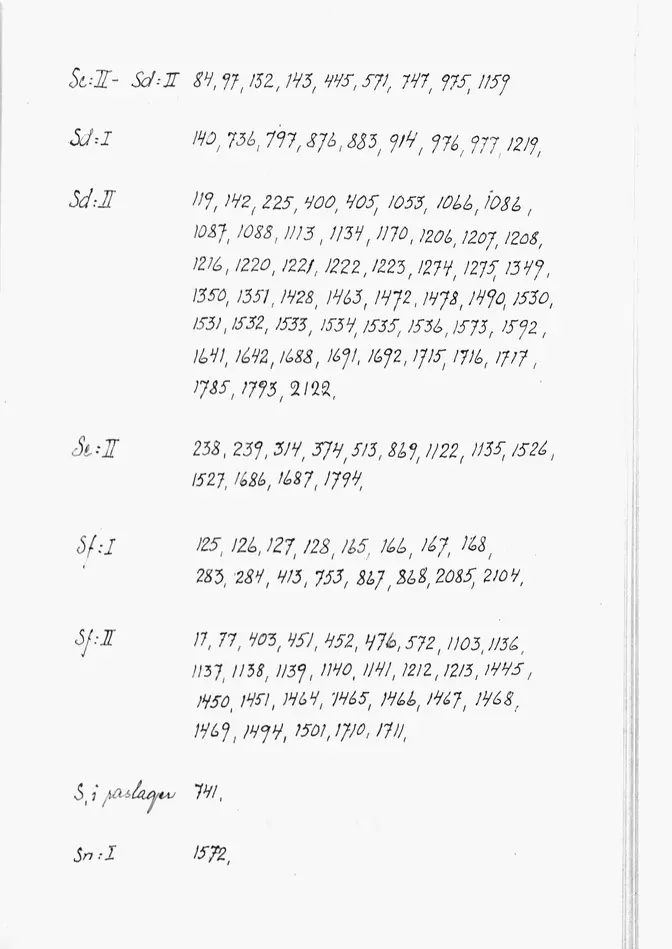 Sc:II - Sd:II 84, 97, 132, 143, 445, 571, 747, 975, 1159
Sd:I 140, 736, 797, 876, 883, 914, 976, 977, 1219,
Sd:II 119, 142, 225, 400, 405, 1053, 1066, 1086,
1087, 1088, 1113, 1134, 1170, 1206, 1207, 1208,
1216, 1220, 1221, 1222, 1223, 1274, 1275, 1349,
1350, 1351, 1428, 1463, 1472, 1478, 1490, 1530,
1531, 1532, 1533, 1534, 1535, 1536, 1573, 1592,
1641, 1642, 1688, 1691, 1692, 1715, 1716, 1717,
1785, 1793, 2122,
Se:II 238, 239, 314, 374, 513, 869, 1122, 1135, 1526,
1527, 1686, 1687, 1794,
Sf:I 125, 126, 127, 128, 165, 166, 167, 168,
283, 284, 413, 753, 867, 868, 2085, 2104,
Sf:II 17, 77, 403, 451, 452, 476, 572, 1103, 1136,
1137, 1138, 1139, 1140, 1141, 1212, 1213, 1445,
1450, 1451, 1464, 1465, 1466, 1467, 1468,
1469, 1494, 1501, 1710, 1711,
S, i 741,
Sn:I 1572,